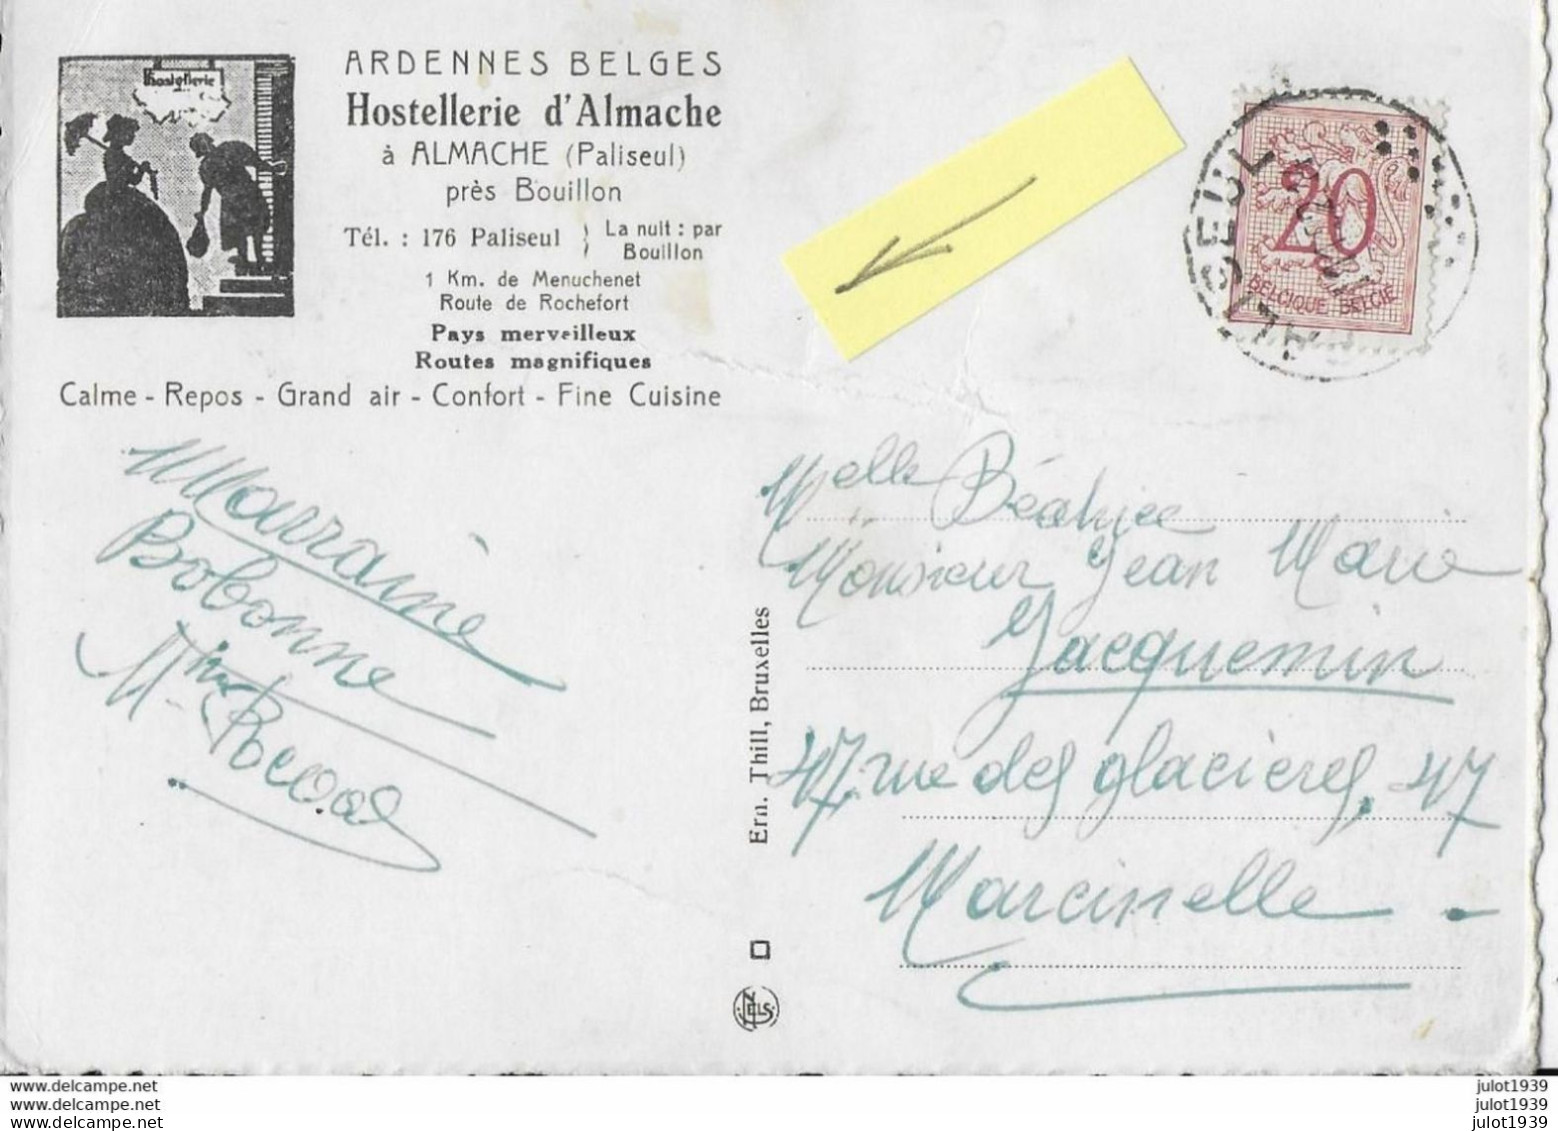 Hostellerie
ARDENNES BELGES
Hostellerie d'Almache
à ALMACHE (Paliseul)
près Bouillon
Tél. : 176 Paliseul
La nuit : par
Bouillon
1 Km. de Menuchenet
Route de Rochefort
Pays merveilleux
Routes magnifiques
Calme - Repos - Grand air - Confort - Fine Cuisine
PALISEUL
20
BELGIQUE BELGIE
Marraine
Bobonne
Mme
Ern. Thill, Bruxelles
NELS
Melle Béatrice
Monsieur Jean Marie
Jacquemin
47, rue des glacières, 47
Marcinelle
www.delcampe.net
www.delcampe.net
www.delcampe.net
julot1939
julot1939
julot1939